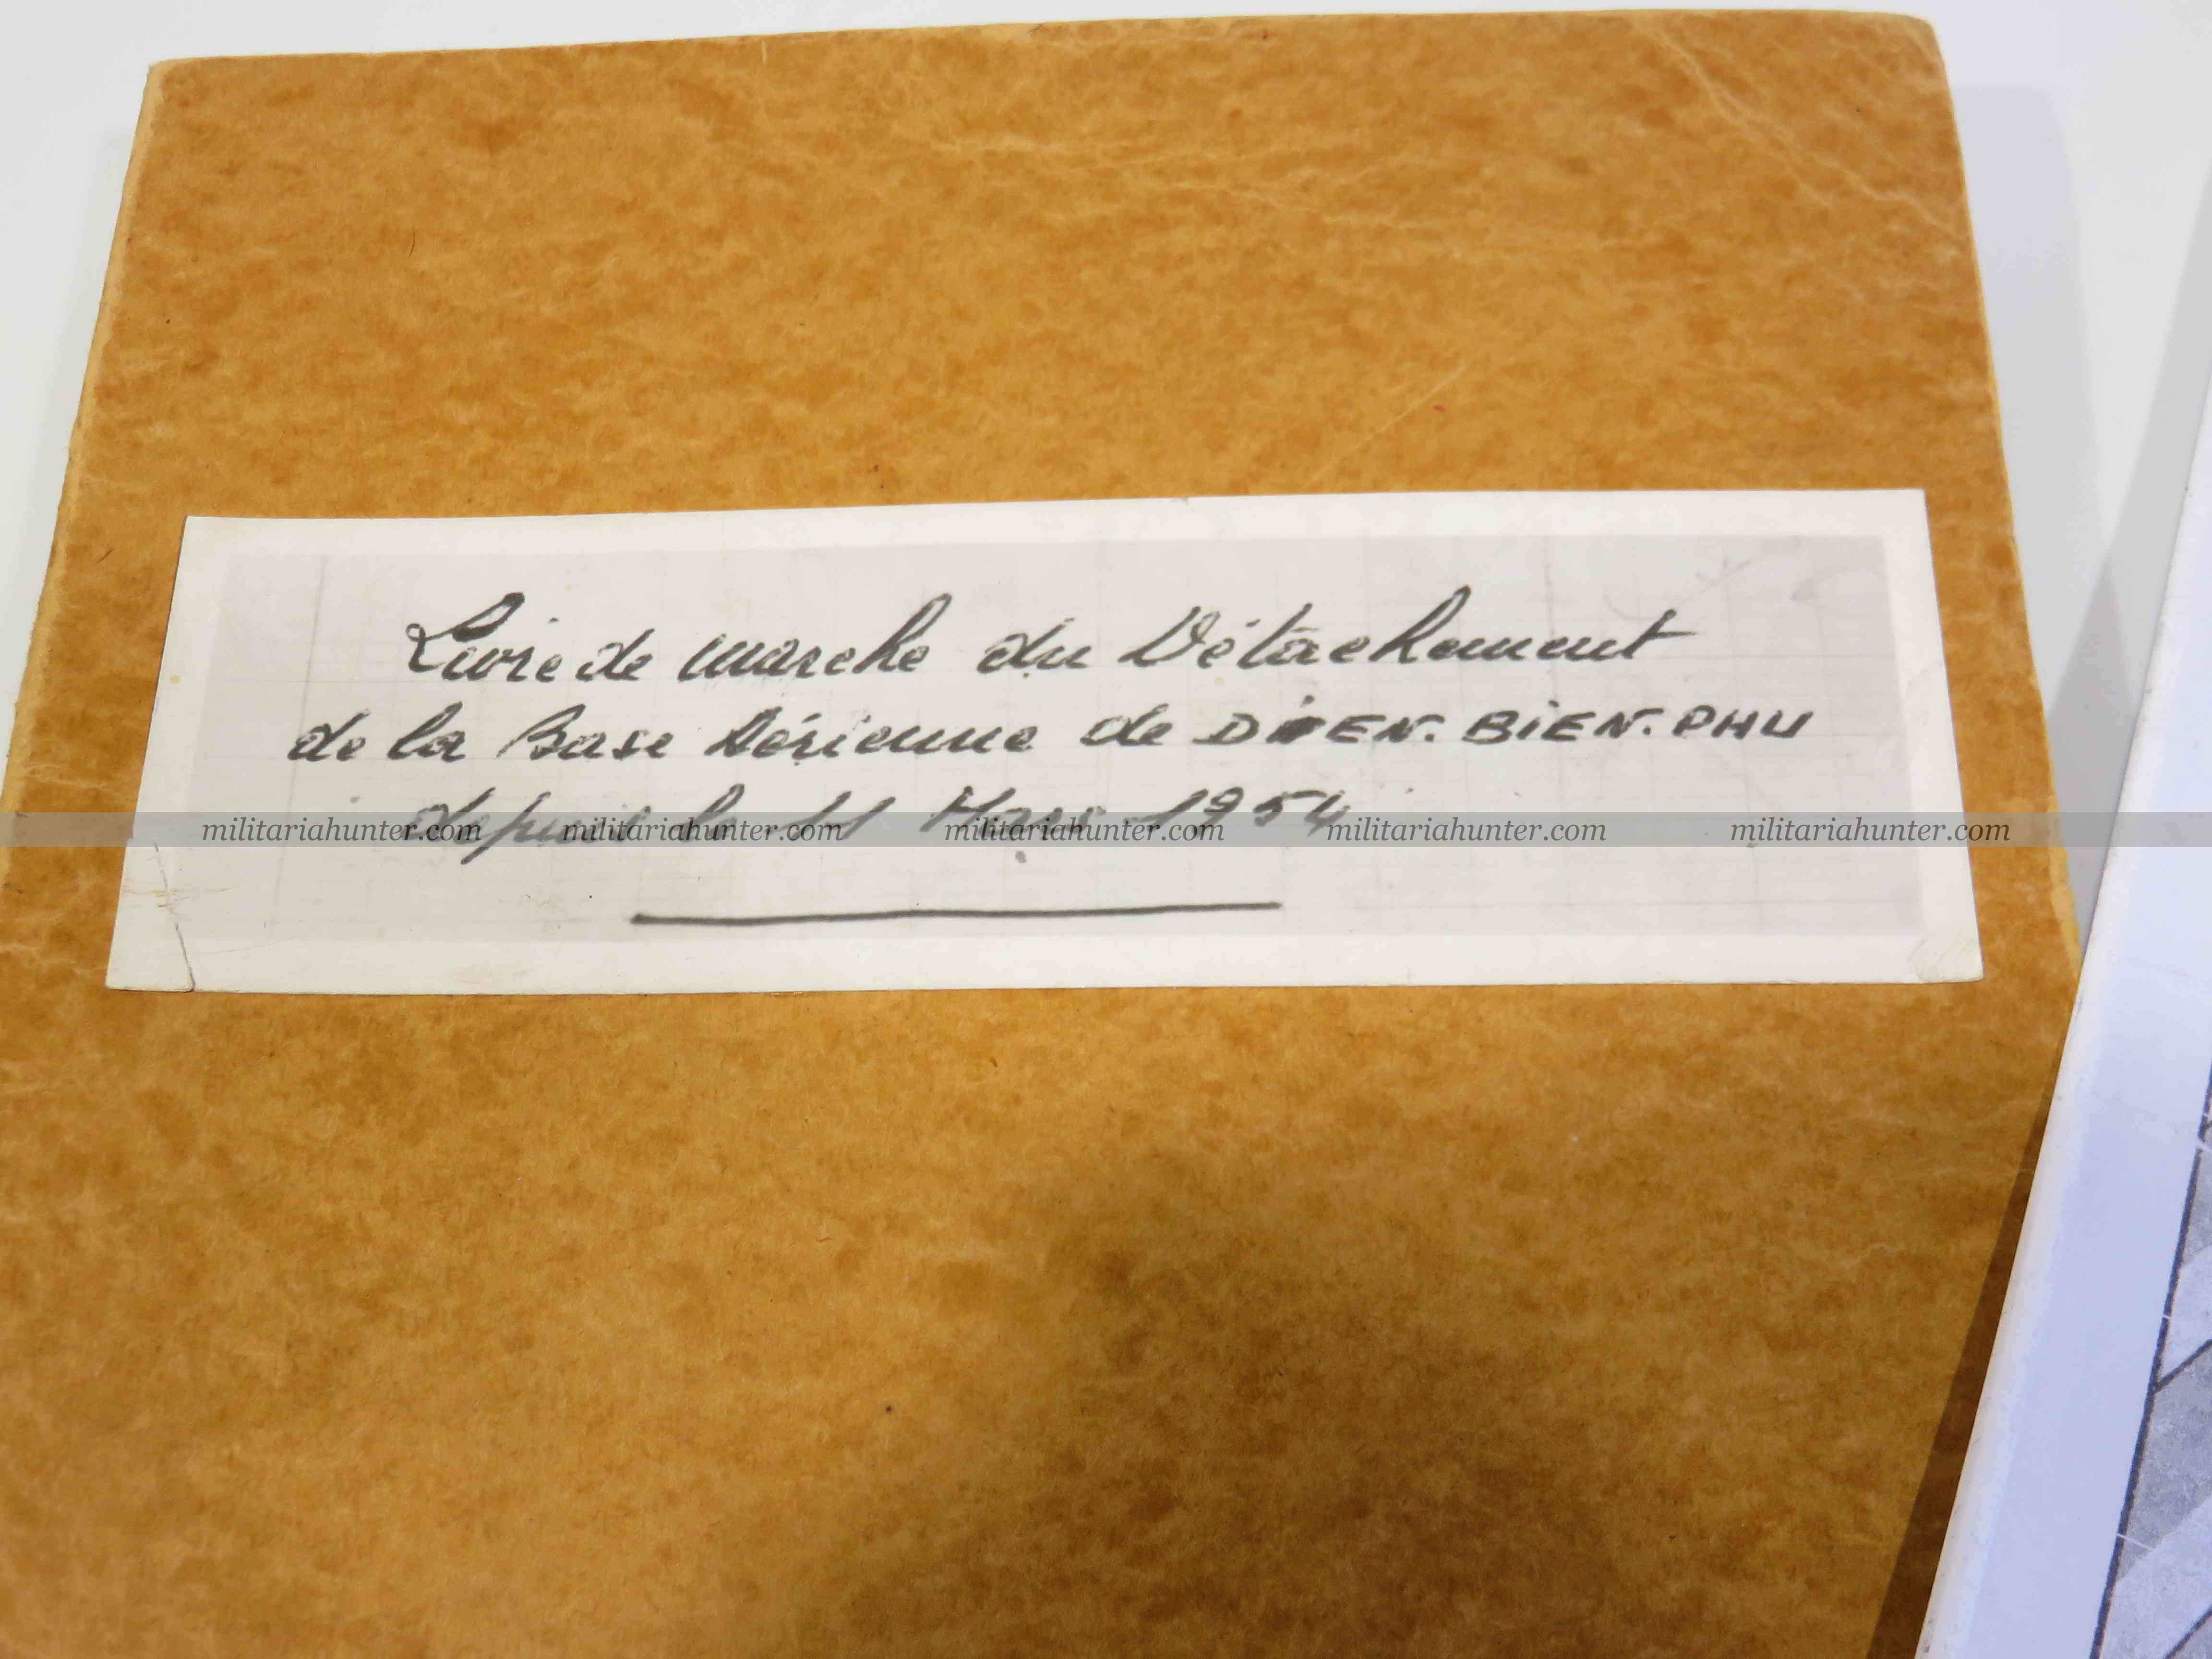 Livre de marche du Détachement
de la Base Aérienne de DIEN. BIEN. PHU
depuis le 11 Mars 1954
militariahunter.com militariahunter.com militariahunter.com militariahunter.com militariahunter.com